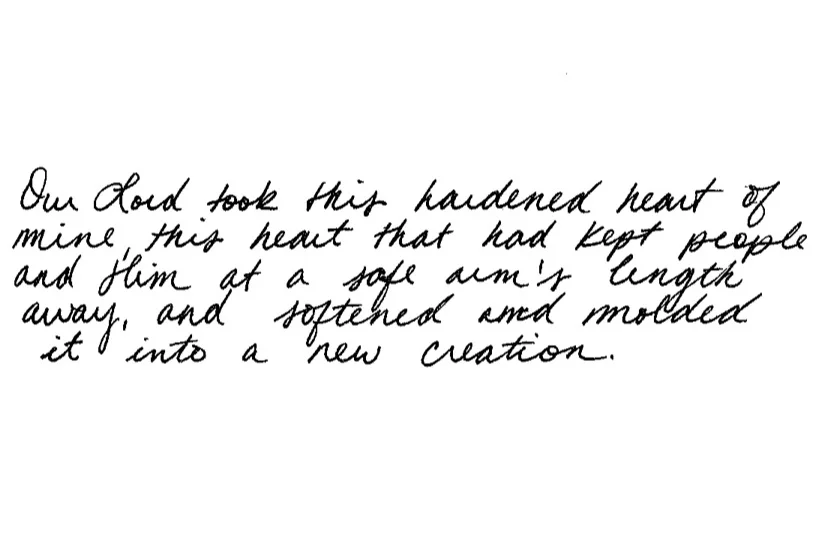 Our Lord took this hardened heart of
mine, this heart that had kept people
and Him at a safe arm's length
away, and softened and molded
it into a new creation.